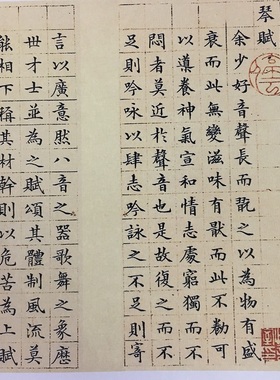 琴賦
余少好音聲長而翫之以為物有盛
衰而此無變滋味有猒而此不勌可
以導養神氣宣和情志處窮獨而不
悶者莫近於聲音也是故復之而不
足則吟咏以肆志吟詠之不足則寄
言以廣意然八音之器歌舞之象歷
世才士並為之賦頌其體制風流莫
能相下稱其材幹則以危苦為上賦